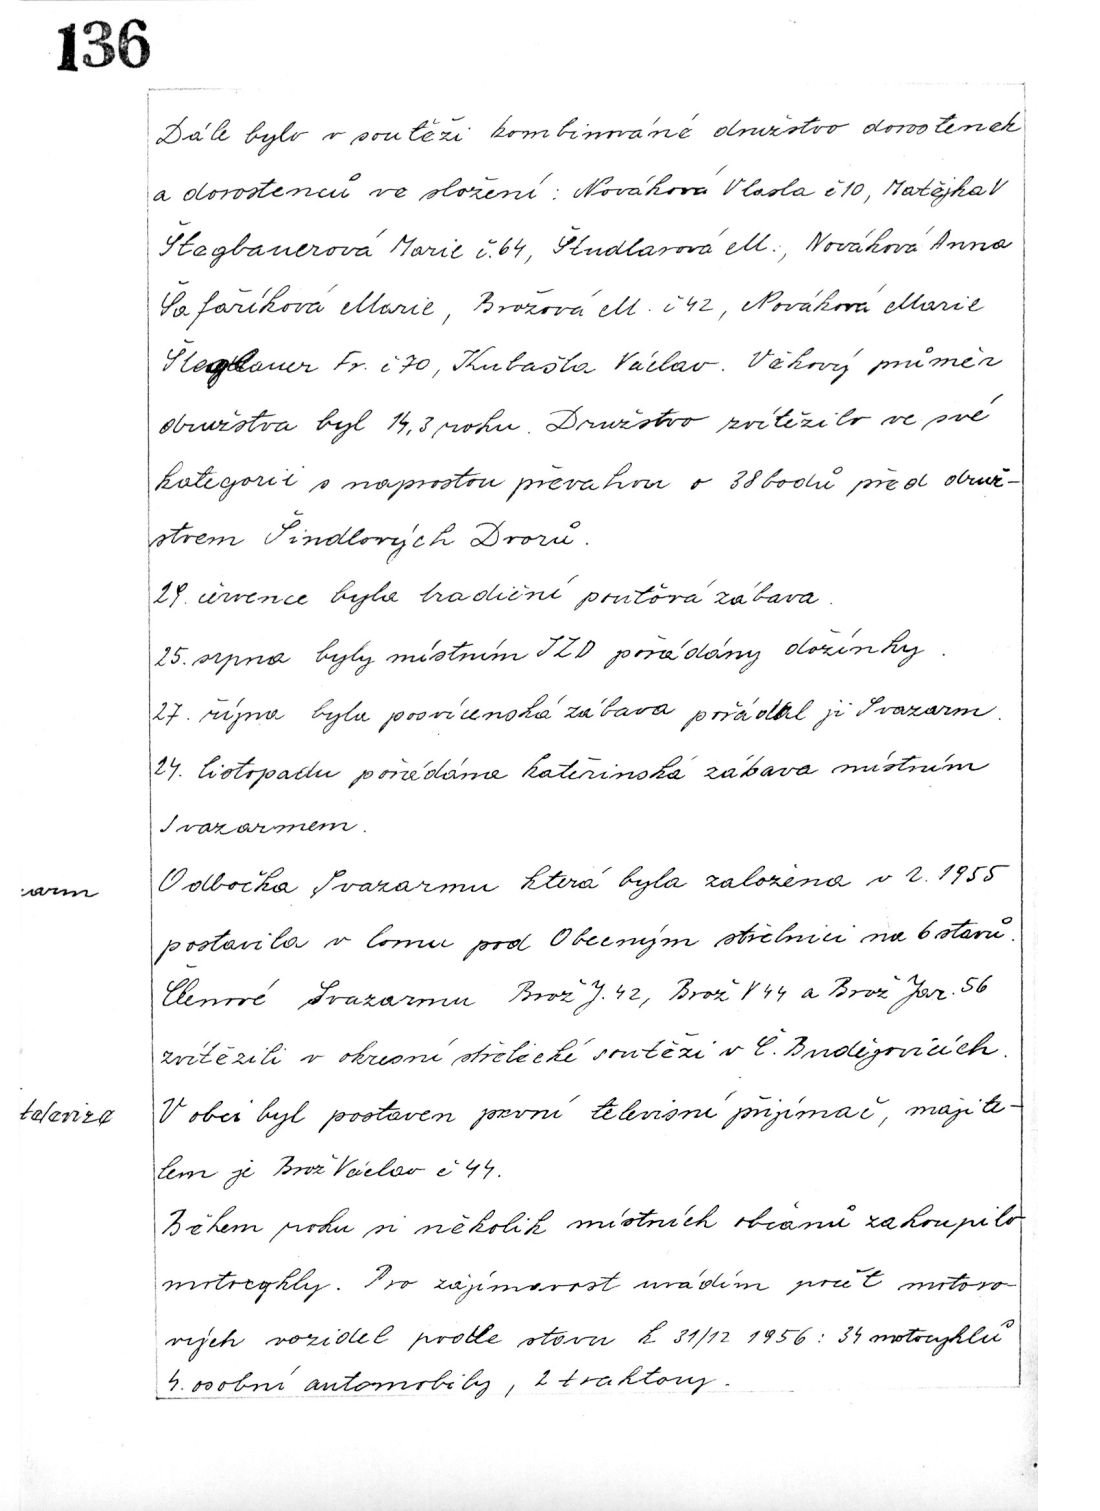 136
Dále bylo v soutěži kombinováné družstvo dorostenek
a dorostenců ve složení: Nováková Vlasta č10, Matějka V
Štegbauerová Marie č.64, Študlarová M., Nováková Anna
Šafaříková Marie, Brožová M. č42, Nováková Marie
Štegbauer Fr. č70, Kubašta Václav. Věkový průměr
družstva byl 14,3 roku. Družstvo zvítězilo ve své
kategorii s naprostou převahou o 38 bodů před druž-
stvem Šindlových Dvorů.
29. července byla tradiční pouťová zábava.
25. srpna byly místním JZD pořádány dožínky.
27. října byla posvícenská zábava pořádal ji Svazarm.
24. listopadu pořádána kateřinská zábava místním
Svazarmem.
zarm
Odbočka Svazarmu která byla založena v r. 1955
postavila v lomu pod Obecným střelnici na 6 stavů.
Členové Svazarmu Brož J. 42, Brož V 44 a Brož Jar. 56
zvítězili v okresní střelecké soutěži v Č. Budějovicích.
televize
V obci byl postaven první televisní přijímač, majite-
lem je Brož Václav č 44.
Během roku si několik místních občanů zakoupilo
motocykly. Pro zajímavost uvádím počet motoro-
vých vozidel podle stavu k 31/12 1956: 34 motocyklů
4. osobní automobily, 2 traktory.